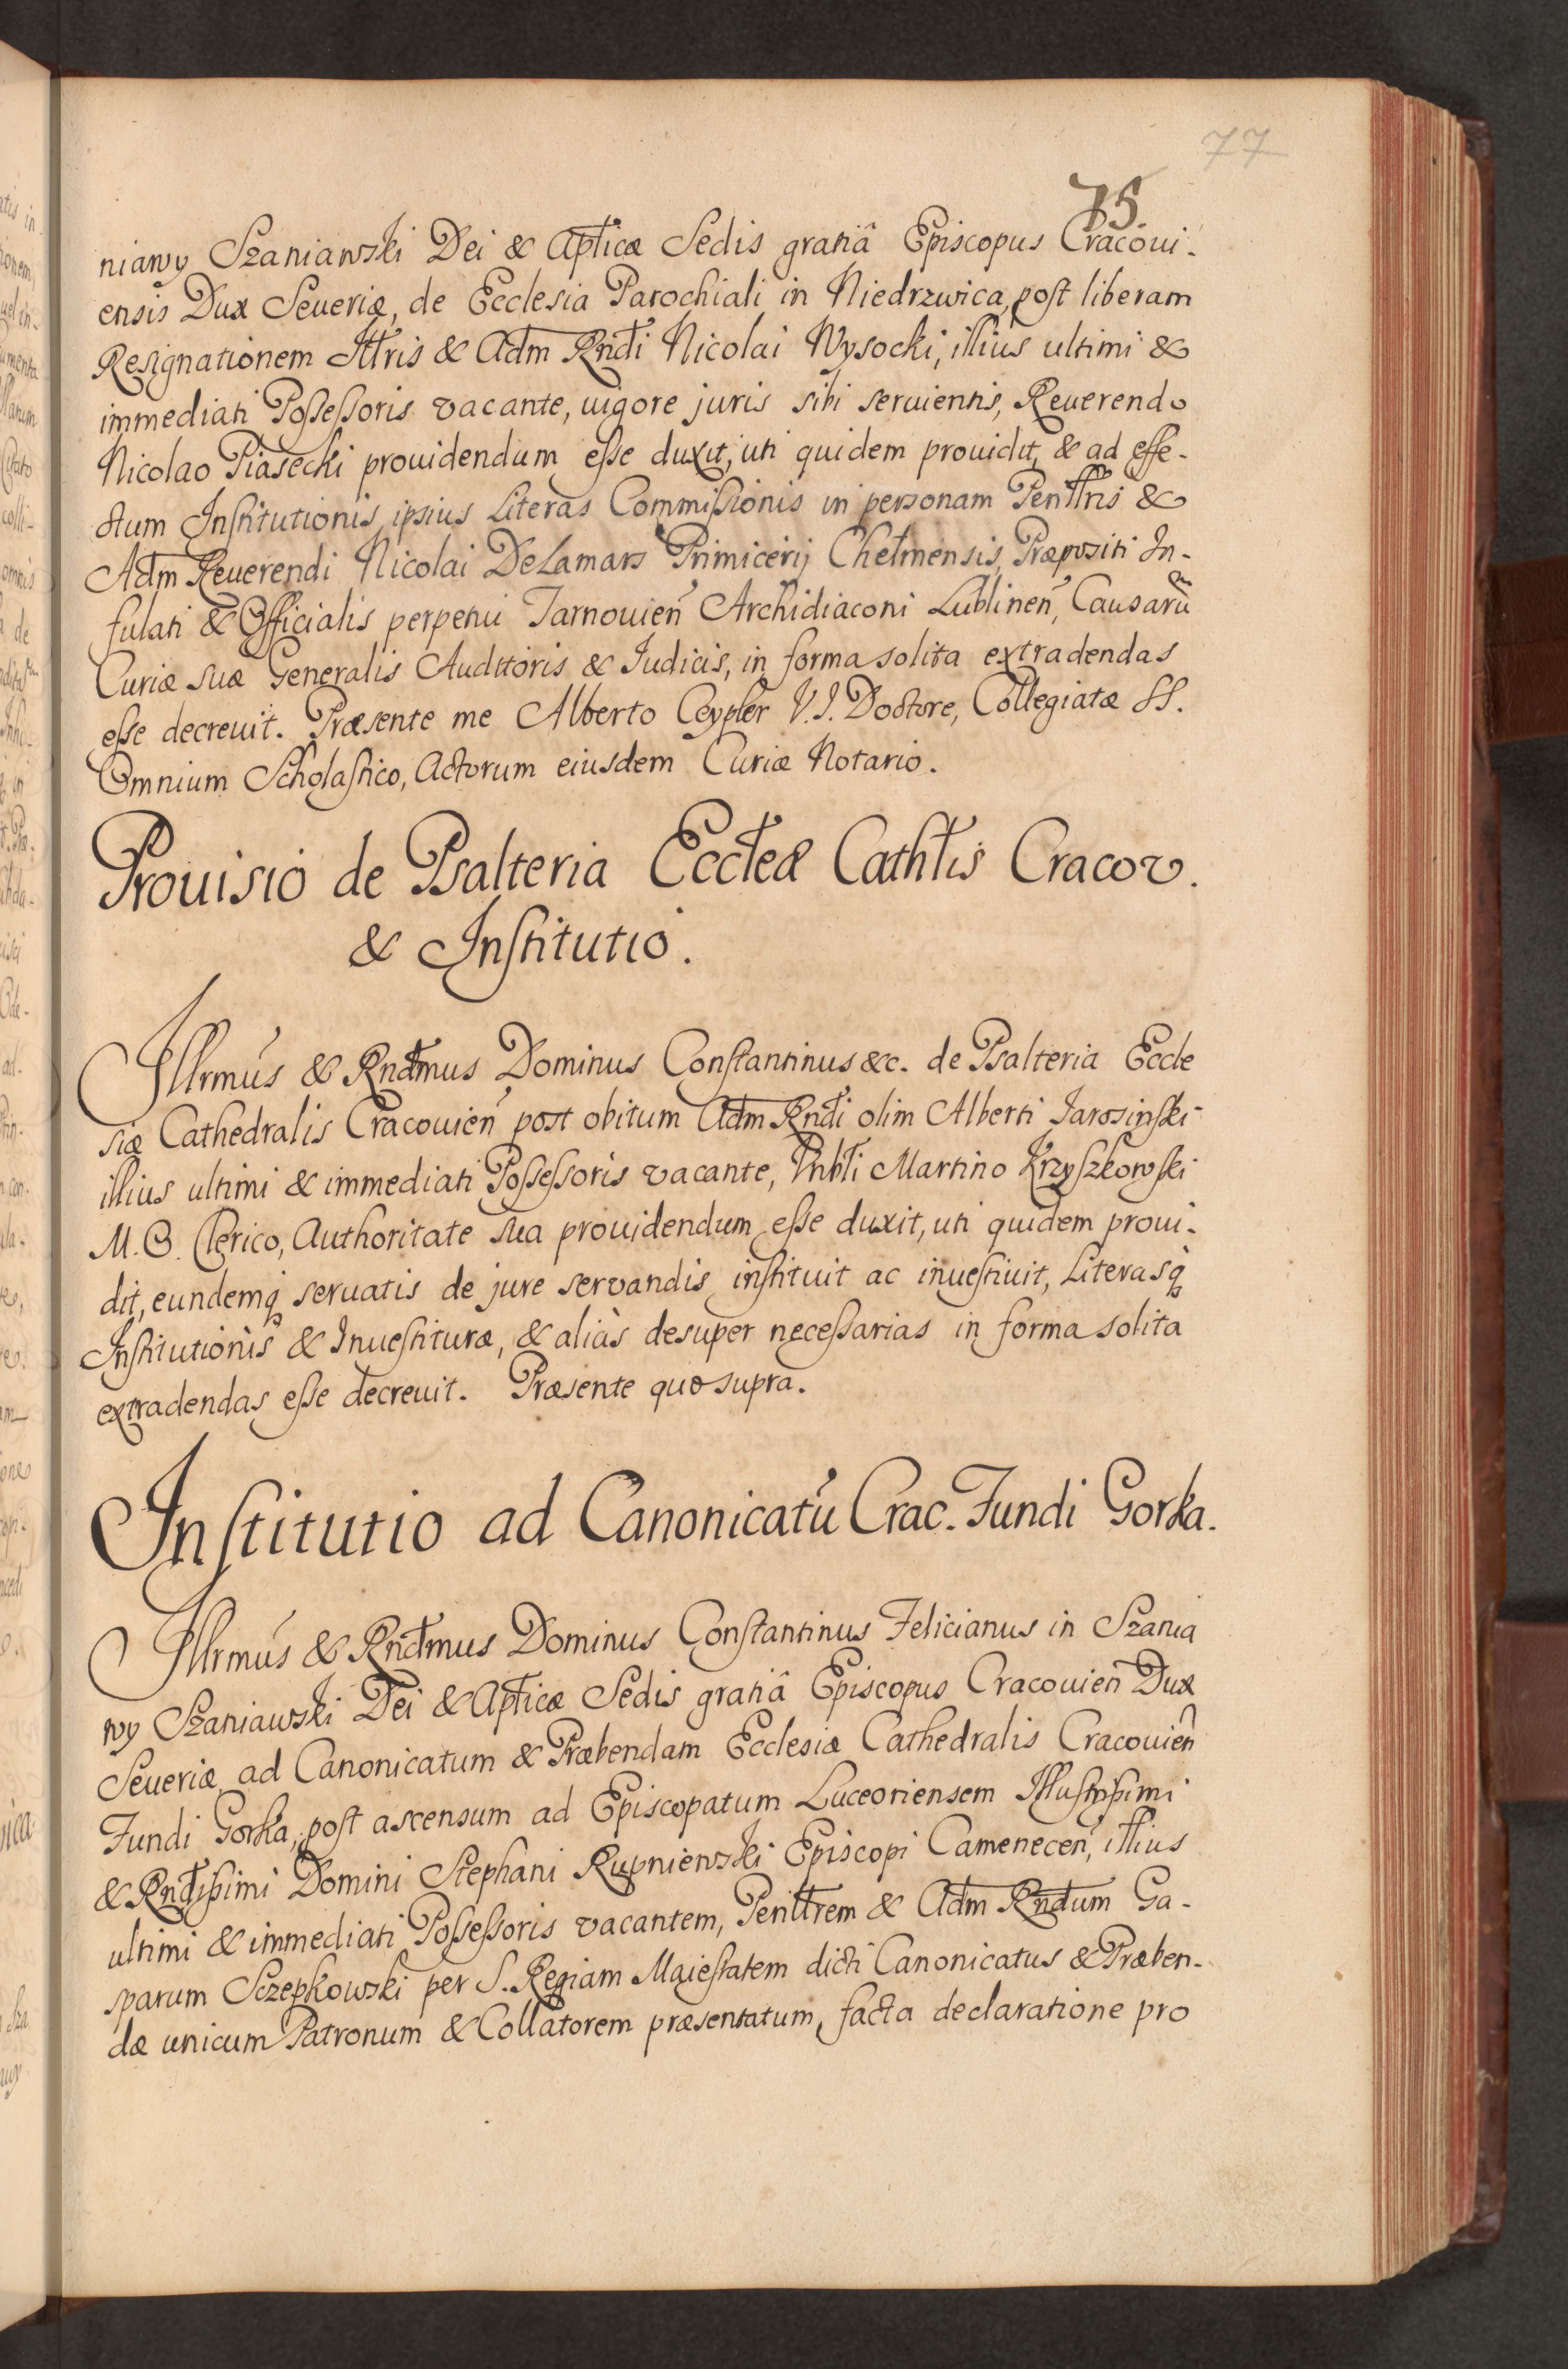 77
75.
niawy Szaniawski Dei & Aptĺicæ Sedis gratiâ Episcopus Cracoui-
ensis Dux Seueriæ, de Ecclesia Parochiali in Niedrzwica, post liberam
Resignationem Iltris & Adm Rndi Nicolai Wysocki, illius ultimi &
immediati Possessoris vacante, uigore juris sibi seruientis, Reuerendo
Nicolao Piasecki prouidendum esse duxit, uti quidem prouidit, & ad effe-
ctum Institutionis ipsius Literas Commissionis in personam Penlltris &
Adm Reuerendi Nicolai DeLamars Primicerij Chełmensis, Præpositi In-
fulati & Officialis perpetui Tarnouien Archidiaconi Lublinen, Causarū
Curiæ suæ Generalis Auditoris & Iudicis, in forma solita extradendas
esse decreuit. Præsente me Alberto Ceypler V.I. Doctore, Collegiatæ SS.
Omnium Scholastico, Actorum eiusdem Curiæ Notario.
Prouisio de Psalteria Eccłeæ Cathłis Cracov.
& Institutio.
Illrmus & Rndmus Dominus Constantinus &c. de Psalteria Eccle
siæ Cathedralis Cracouien post obitum Adm Rndi olim Alberti Jarosinski
illius ultimi & immediati Possessoris vacante, Vnbłi Martino Krzyszkowski
M. O. Clerico, Authoritate sua prouidendum esse duxit, uti quidem proui-
dit, eundemq́ seruatis de jure servandis instituit ac inuestiuit, Literasq́
Institutionis & Inuestituræ, & aliàs desuper necessarias in forma solita
extradendas esse decreuit. Præsente quo supra.
Institutio ad Canonicatū Crac. Fundi Gorka.
Illrmus & Rndmus Dominus Constantinus Felicianus in Szania
wy Szaniawski Dei & Aptłicæ Sedis gratiâ Episcopus Cracouien Dux
Seueriæ ad Canonicatum & Præbendam Ecclesiæ Cathedralis Cracouien
Fundi Gorka, post ascensum ad Episcopatum Luceoriensem Illustrissimi
& Rndissimi Domini Stephani Rupniewski Episcopi Camenecen, illius
ultimi & immediati Possessoris vacantem, Penlltrem & Adm Rndum Ga-
sparum Sczepkowski per S. Regiam Maiestatem dicti Canonicatus & Præben-
dæ unicum Patronum & Collatorem præsentatum, facta declaratione pro